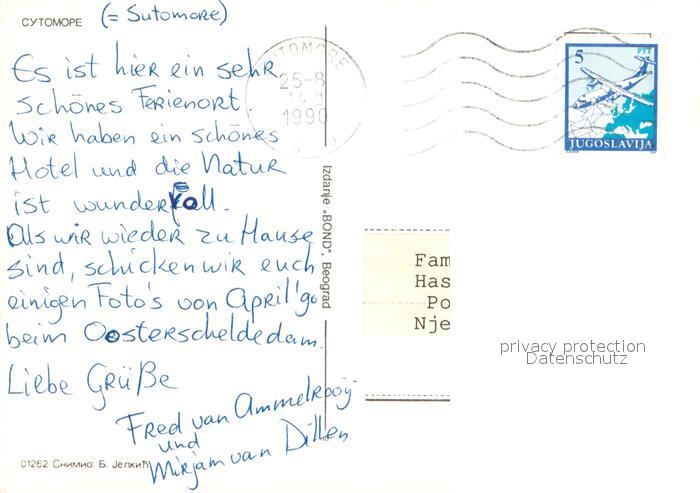 СУТОМОРЕ (= Sutomore)
Es ist hier ein sehr
schönes Ferienort.
Wir haben ein schönes
Hotel und die Natur
ist wundervoll.
Als wir wieder zu Hause
sind, schicken wir euch
einigen Foto's von April '90
beim Oosterscheldedam.
Liebe Grüße
Fred van Ammelrooij
und
Mirjam van Dillen
01262 Снимио: Б. Јелкић
Izdanje „BOND", Beograd
SUTOMORE
25-8
1990
5 PTT
JUGOSLAVIJA
Fam
Has
Po
Nje
privacy protection
Datenschutz